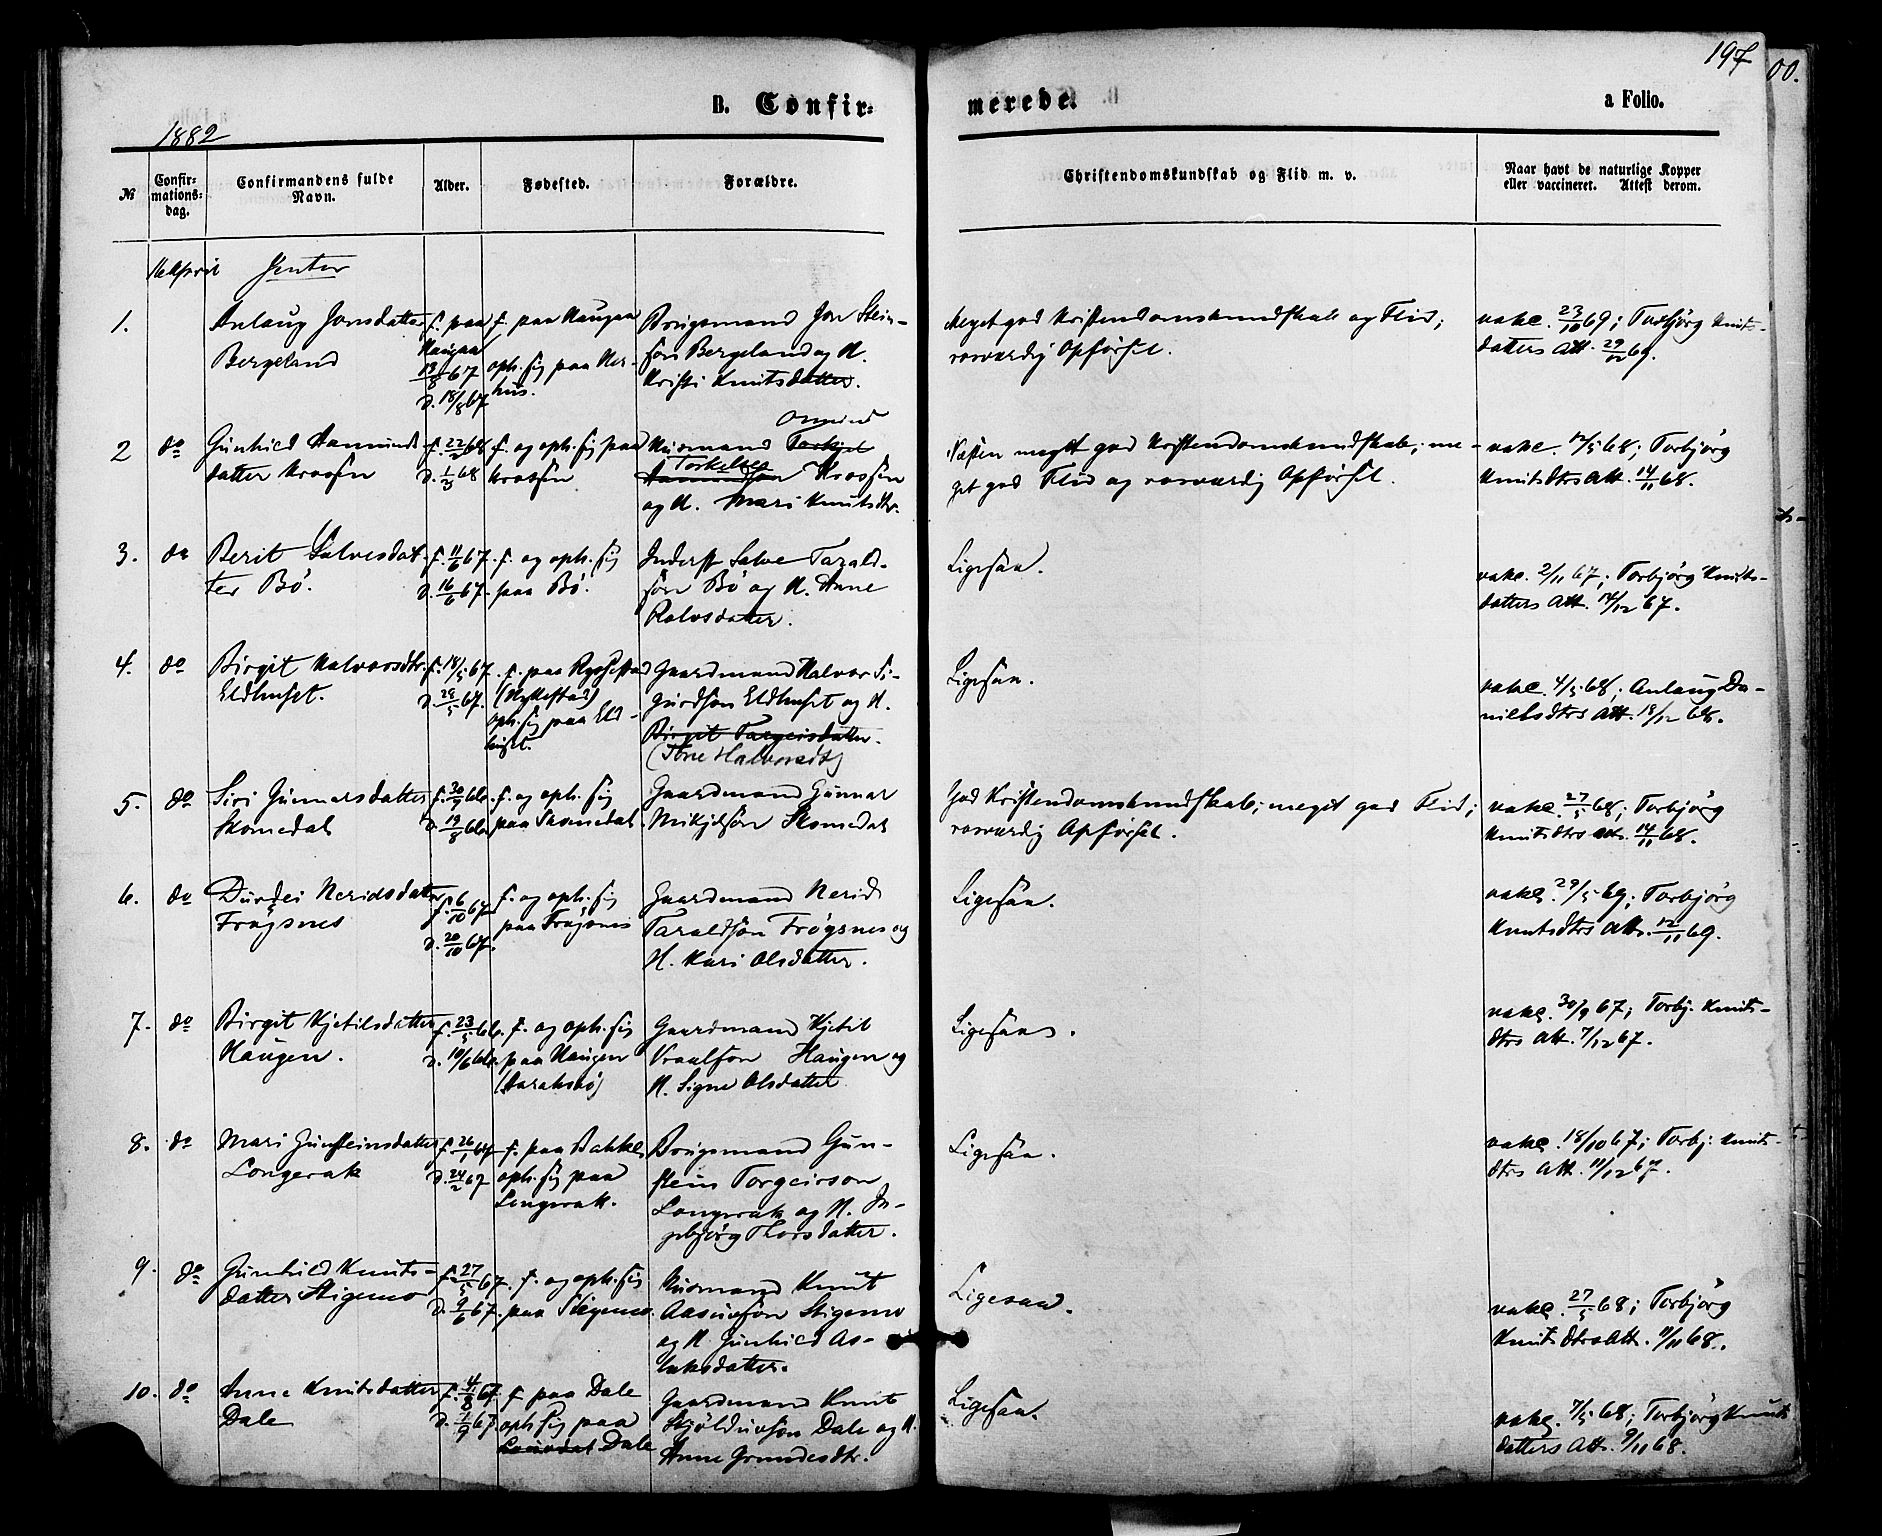 197
00.
B. Confir-
merede.
a Folio.
1882
№
Confir-
mations-
dag.
Confirmandens fulde
Navn.
Alder.
Fødested.
Forældre.
Christendomskundskab og Flid m. v.
Naar havt de naturlige Kopper
eller vaccineret. Attest derom.
16 April
Jenter
1.
Anlaug Jonsdatter
Bergeland
f. paa
Haugaa
13/8 67
d. 18/8 67
f. paa Haugaa
oph. sig paa Ner-
hus.
Brugsmand Jon Stein-
søn Bergeland og H.
Kristi Knutsdatter.
Meget god Kristendomskundskab og Flid;
rosværdig Opførsel.
vakc. 23/10 69; Torbjörg Knuts-
datters Att. 29/12 69.
2
do
Gunhild Aamunds-
datter Krossen
f. 22/2 68
d. 1/3 68
f. og oph. sig paa
Krossen
Husmand Torkjel
Omund
Aamundsøn Krossen
Torkelsen
og H. Mari Knutsdtr.
Næsten meget god Kristendomskundskab; me-
get god Flid og rosværdig Opførsel.
vakc. 12/5 68; Torbjörg
Knutsdtrs Att. 14/11 68.
3.
do
Berit Salvesdat-
ter Bö.
f. 11/6 67.
d. 16/6 67.
f. og oph. sig
paa Bö.
Inderst Salve Tarald-
søn Bö og H. Anne
Rolvsdatter.
Ligesaa.
vakc. 2/11 67; Torbjörg Knuts-
datters Att. 14/12 67.
4.
do
Birgit Halvorsdtr.
Eldhuset.
f. 18/5 67.
d. 29/5 67.
f. paa Rygestad
(Rykkestad)
oph. sig paa Eld-
huset.
Gaardmand Halvor Si-
gurdsøn Eldhuset og H.
Birgit Targeirsdatter.
(Tone Halvorsdtr)
Ligesaa.
vakc. 4/5 68; Anlaug Da-
nielsdtrs Att. 18/12 68.
5.
do
Siri Gunnarsdatter
Skomedal
f. 30/7 66.
d. 19/8 66.
f. og oph. sig
paa Skomedal.
Gaardmand Gunnar
Mikjelsøn Skomedal
God Kristendomskundskab; meget god Flid;
rosværdig Opførsel.
vakc. 27/5 68; Torbjörg
Knutsdtrs att. 14/11 68.
6.
do
Durdei Neridsdatter
Fröysnes
f. 6/10 67
d. 20/10 67.
f. og oph. sig
paa Fröysnes
Gaardmand Nerid
Taraldsøn Fröysnes og
H. Kari Olsdatter.
Ligesaa.
vakc. 29/5 69; Torbjörg
Knutsdtrs Att. 12/11 69.
7.
do
Birgit Kjetilsdatter
Haugen.
f. 23/5 66.
d. 10/6 66.
f. og oph. sig
paa Haugen
(Araksbø)
Gaardmand Kjetil
Vraalson Haugen og
H. Signe Olsdatter
Ligesaa.
vakc. 30/9 67; Torbj. Knuts-
dtrs Att. 7/12 67.
8.
do
Mari Gunsteinsdatter
Longerak
f. 26/1 67
d. 24/2 67
f. paa Bakke
oph. sig paa
Longerak.
Brugsmand Gun-
stein Torgeirson
Longerak og H. In-
gebjörg Thorsdatter.
Ligesaa.
vakc. 18/10 67; Torbj. Knuts-
dtrs Att. 11/12 67.
9.
do
Gunhild Knuts-
datter Stigemo
f. 27/5 67.
d. 9/6 67.
f. og oph. sig
paa Stigemo.
Husmand Knut
Aasulvson Stigemo
og H. Gunhild As-
laksdatter.
Ligesaa.
vakc. 27/5 68; Torbjörg
Knutsdtrs Att. 11/11 68.
10.
do
Anne Knutsdatter
Dale
f. 4/8 67
d. 1/9 67
f. paa Dale
oph sig paa
Dale
Gaardmand Knut
Skjöldulvsøn Dale og H.
Anne Grundesdtr.
Ligesaa.
vakc. 7/5 68; Torbjörg Knuts
datters Att. 9/11 68.